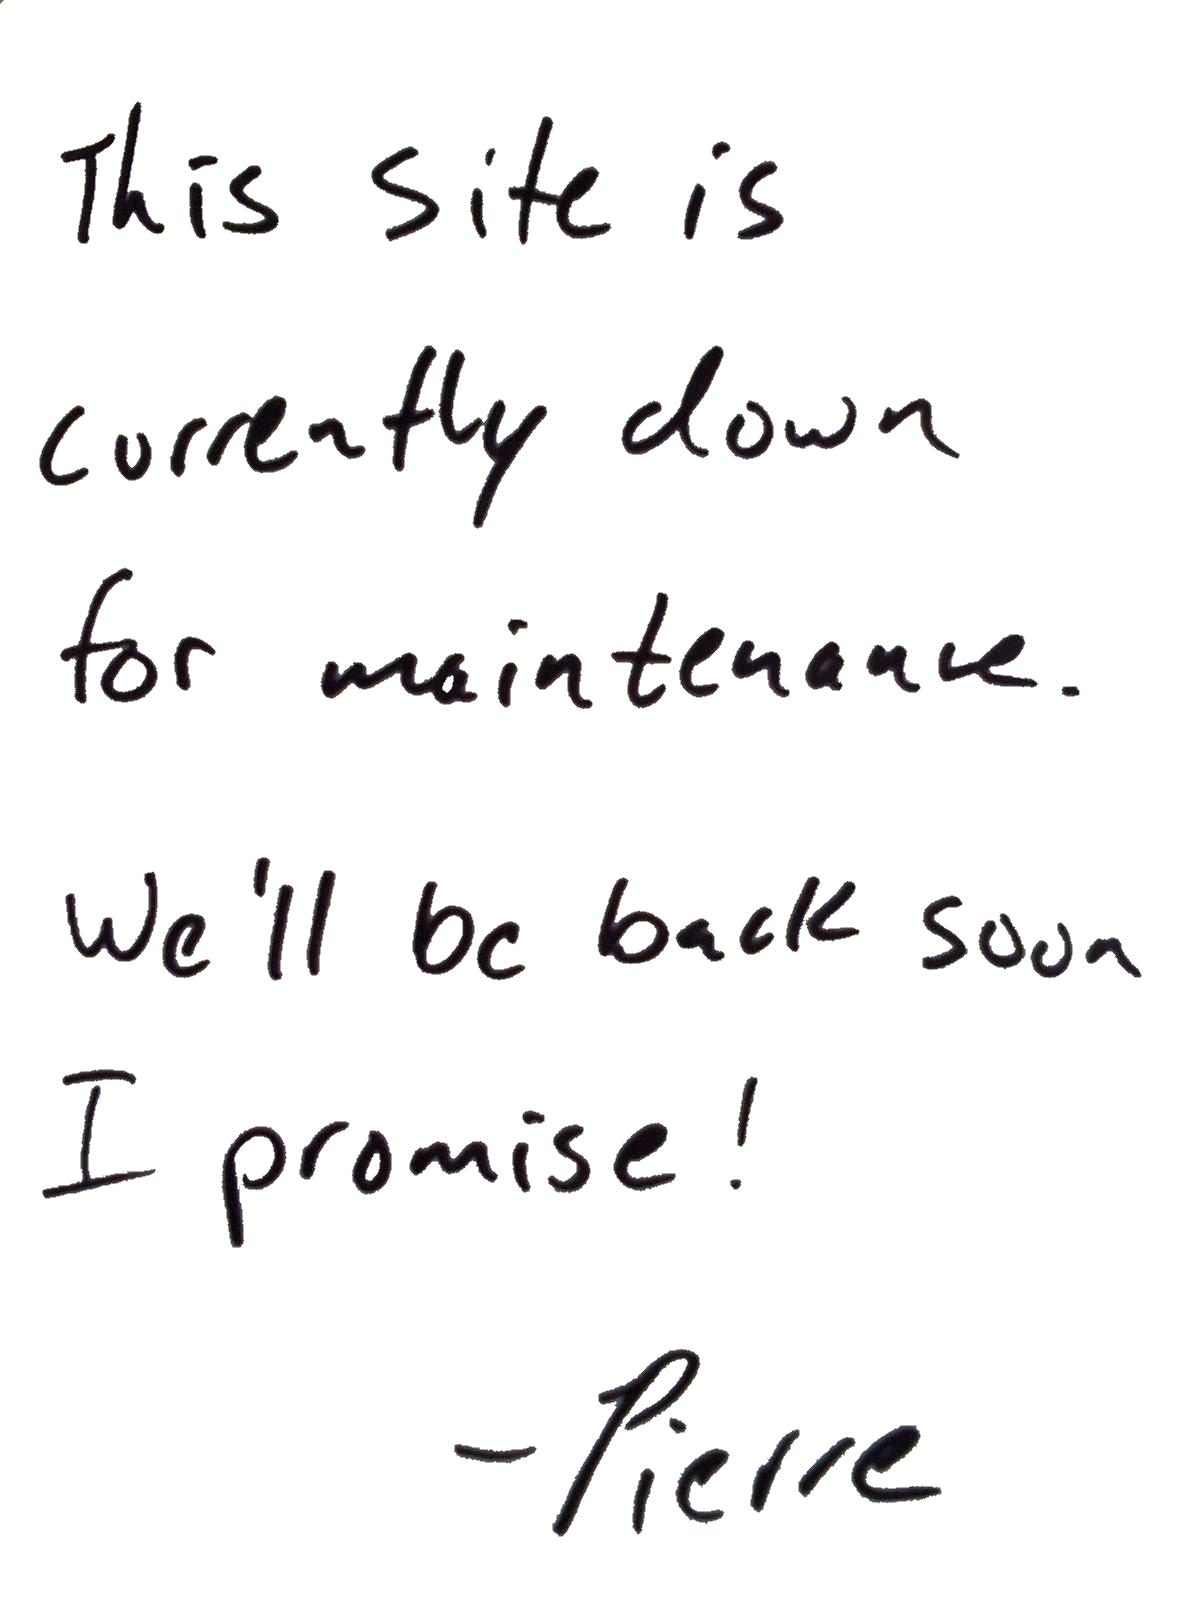 This site is
currently down
for maintenance.
We'll be back soon
I promise!
-Pierre